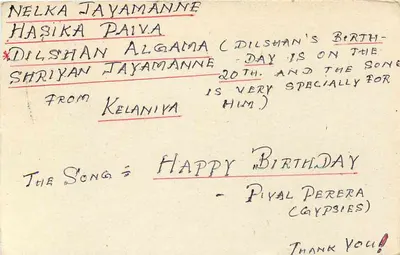 NELKA JAYAMANNE
HASIKA PAIVA
*DILSHAN ALGAMA (DILSHAN'S BIRTH-
SHRIYAN JAYAMANNE -DAY IS ON THE
20TH. AND THE SONG
FROM IS VERY SPECIALLY FOR
KELANIYA HIM)
THE SONG = HAPPY BIRTHDAY
- PIYAL PERERA
(GYPSIES)
THANK YOU!